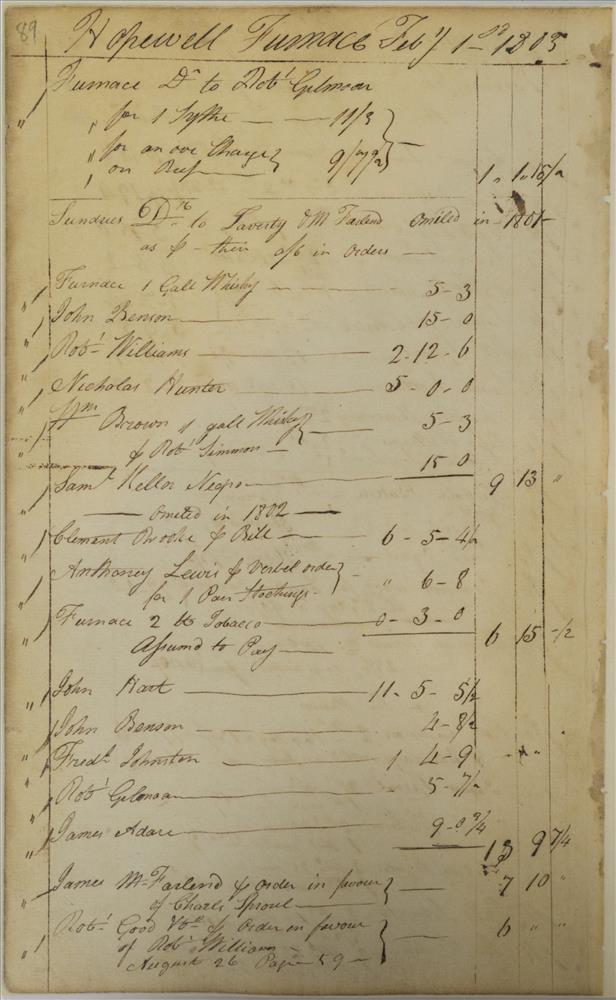 89
Hopewell Furnace Feby 1st 1803
Furnace Dr to Robt Gilmoor
" for 1 Sythe — — 11/3
" for an over Charge
" on Beef — 9/ 1 " 1 "
Sundries Drs to Laverty & McFarlend Omited in 1801
as  — their a/c in orders —
Furnace 1 Gall Whisky — 5 - 3
John Benson — 15 - 0
Robt Williams — 2 - 12 - 6
Nicholas Hunter — 5 - 0 - 0
Wm Brown 1 gall Whisky — 5 - 3
 Robt Simmon —
Saml Kellor Negro — 15 0 9 13 "
— Omited in 1802 —
Clement Brooke  Bill — 6 - 5 - 4½
Anthoney Lewis  Verbel order — " 6 - 8
for 1 Pair Stockings -
Furnace 2 lb Tobacco — 0 - 3 - 0 6 15 -½
Assumd to Pay —
John Hart — 11 - 5 - 5½
John Benson — 4 - 8½
Fredk Johnston — 1 4 - 9
Robt Gilmoor — 5 - 7½
James Adare — 9 - 0 ¾ 13 9 7¼
James McFarlend  order in favour — 7 10 "
of Charls Sproul —
Robt Good  order in favour — 6 " "
of Robt Williams -
August 26 Page 59 -